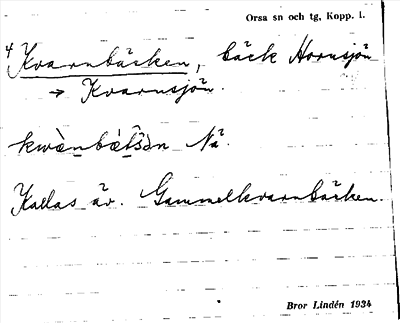 Orsa sn och tg, Kopp. l.
4 Kvarnbäcken, bäck Hornsjön
→ Kvarnsjön.
Nä.
Kallas äv. Gammelkvarnbäcken.
Bror Lindén 1934